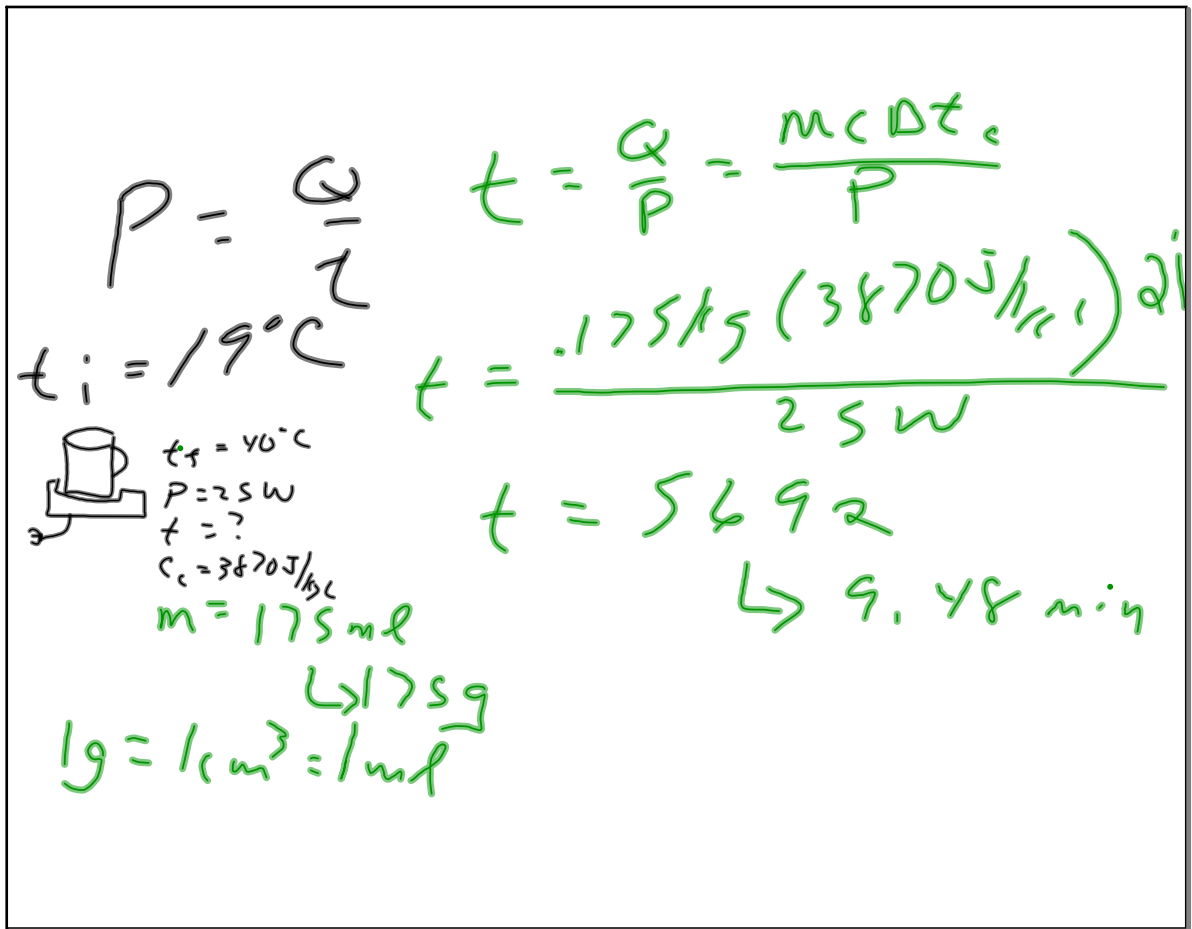 P = Q/t
ti = 19°C
tf = 40°C
P = 25W
t = ?
Cc = 3870J/kgC
m = 175ml
↳175g
1g = 1cm³ = 1ml
t = Q/P = mcΔtc/P
t = .175kg(3870J/kgC)21/25W
t = 569s
↳ 9.48 min